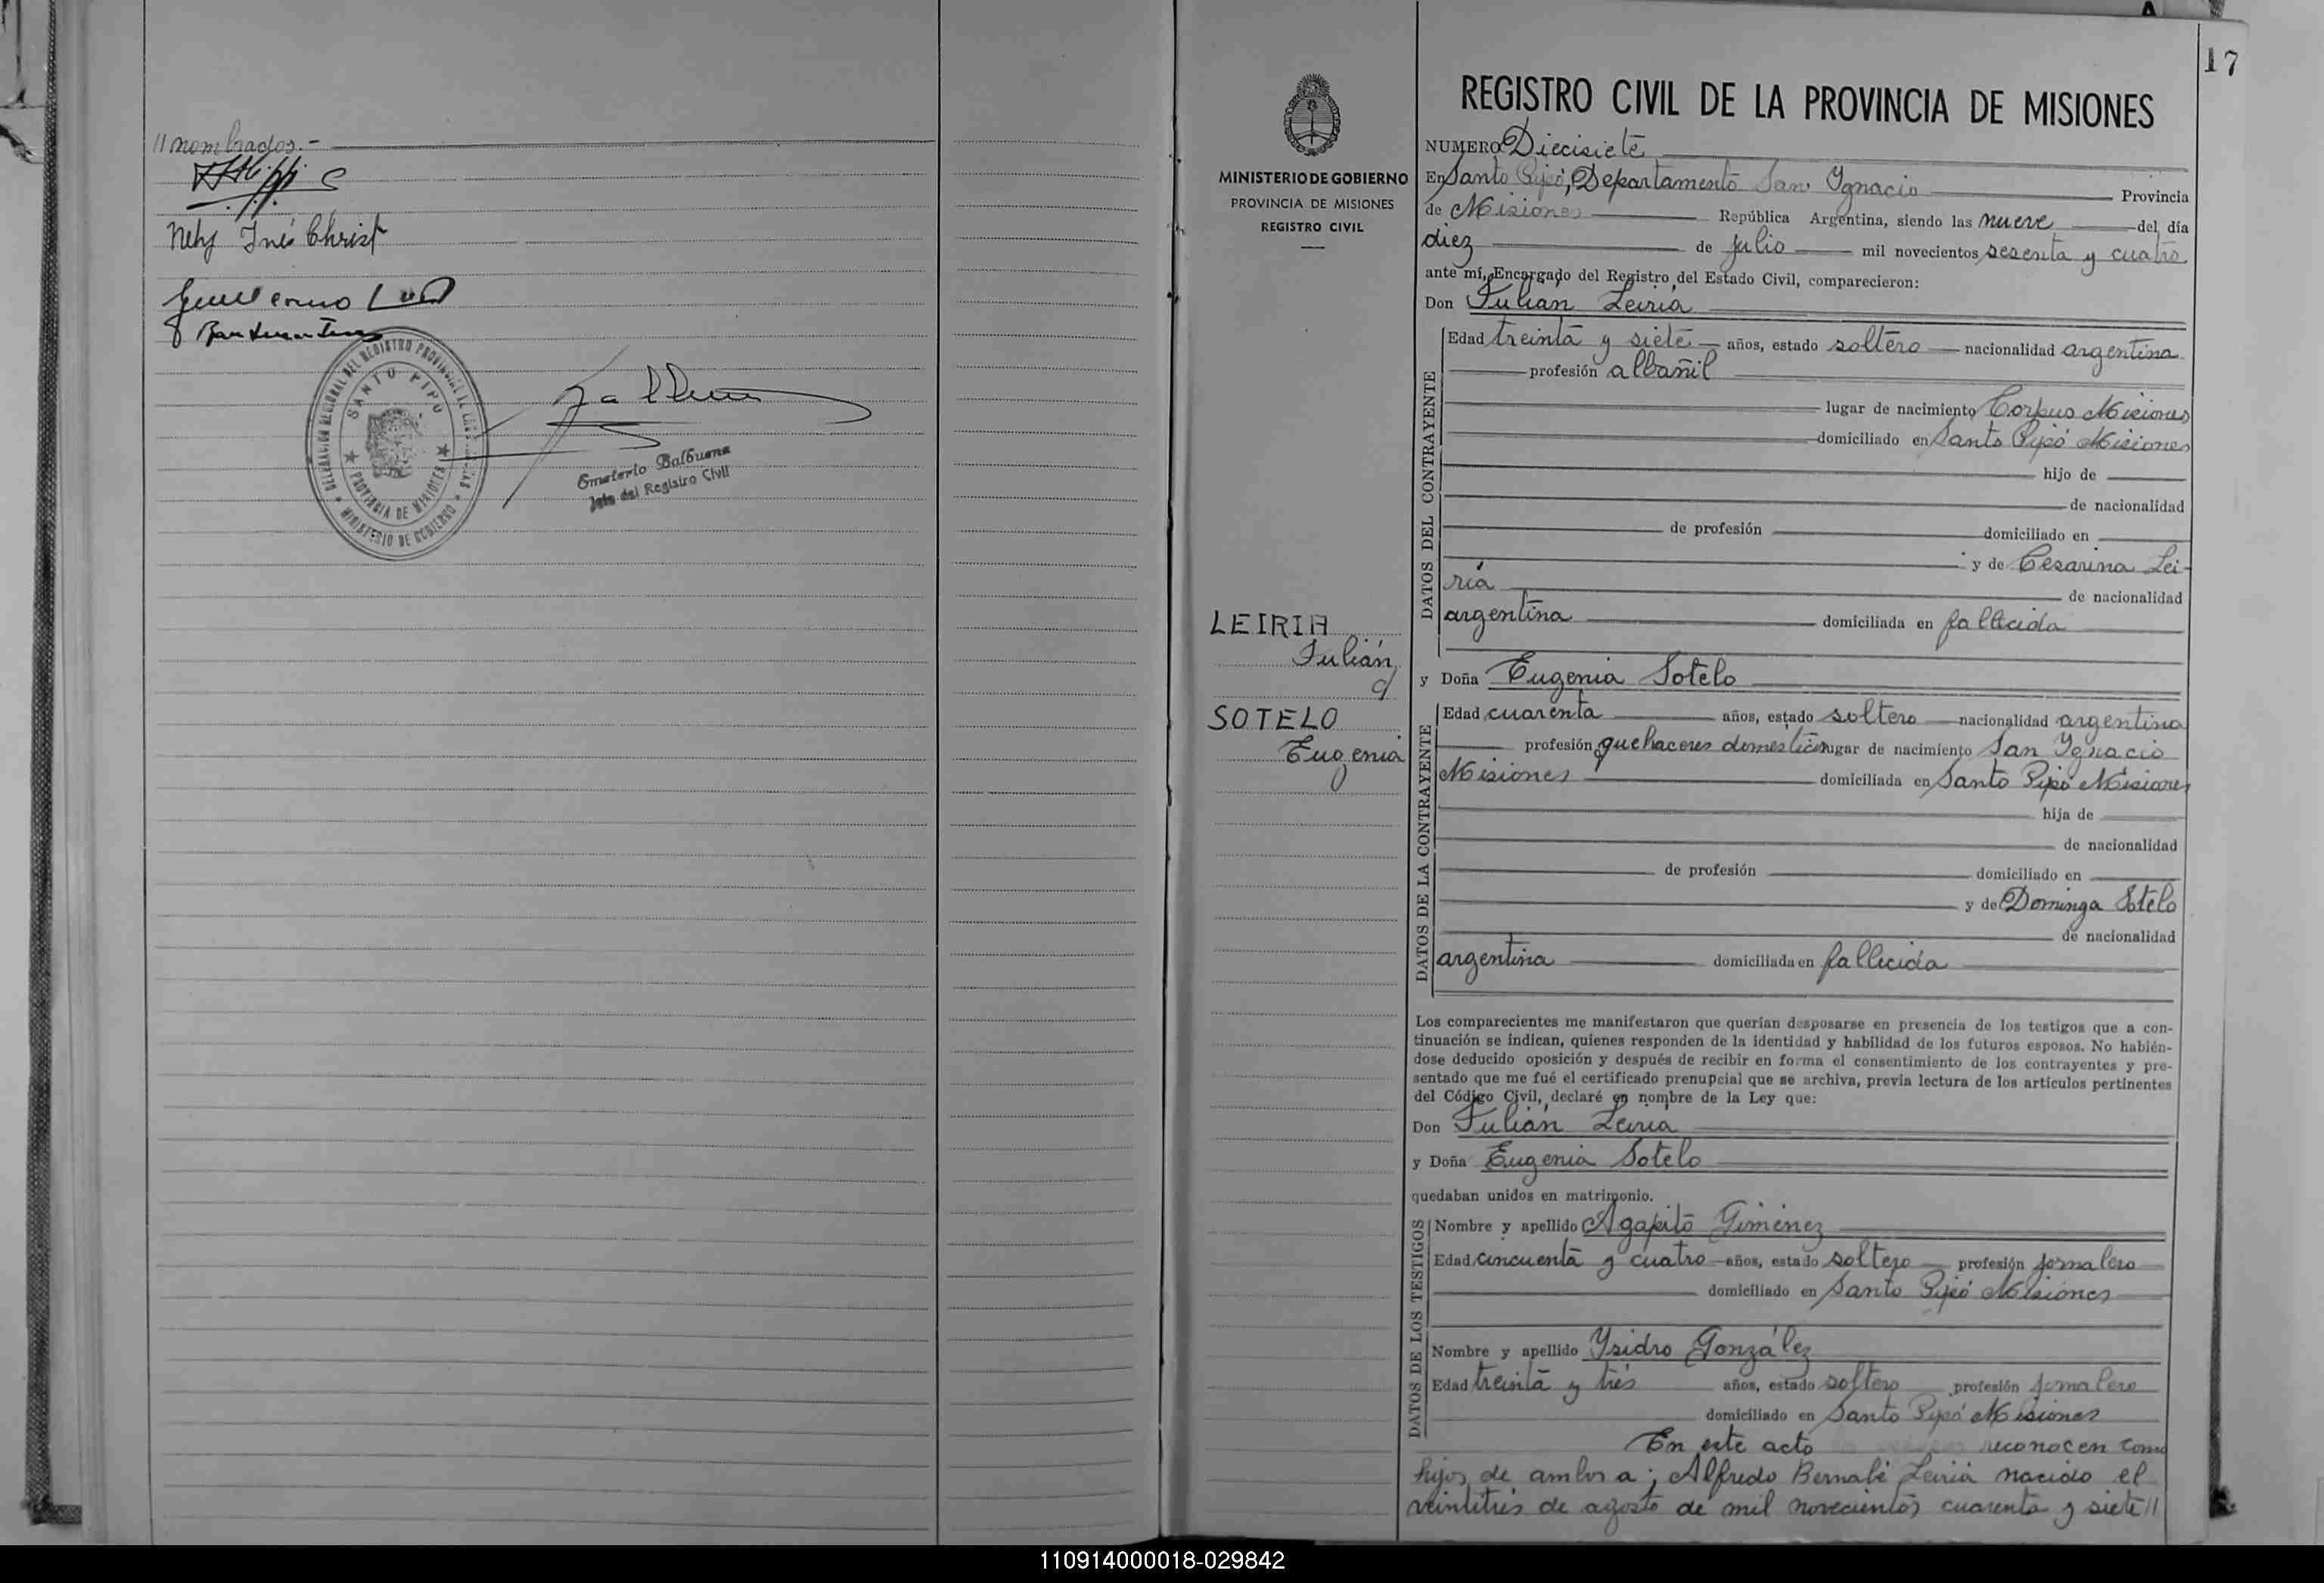 // nombrados.-
Nely Inés Christ
Guillermo
DELEGACION REGIONAL DEL REGISTRO PROVINCIAL DE LAS PERSONAS
SANTO PIPO
PROVINCIA DE MISIONES
MINISTERIO DE GOBIERNO
Emeterio Balbuena
Jefe del Registro Civil
17
MINISTERIO DE GOBIERNO
PROVINCIA DE MISIONES
REGISTRO CIVIL
LEIRIA
Julián
c/
SOTELO
Eugenia
REGISTRO CIVIL DE LA PROVINCIA DE MISIONES
NUMERO Diecisiete
En Santo Pipó, Departamento San Ygnacio Provincia
de Misiones República Argentina, siendo las nueve del día
diez de julio mil novecientos sesenta y cuatro
ante mí, Encargado del Registro del Estado Civil, comparecieron:
Don Julián Leiria
DATOS DEL CONTRAYENTE
Edad treinta y siete años, estado soltero nacionalidad argentina
profesión albañil
lugar de nacimiento Corpus Misiones
domiciliado en Santo Pipó Misiones
hijo de
de nacionalidad
de profesión domiciliado en
y de Cesarina Lei-
ría
de nacionalidad
argentina domiciliada en fallecida
y Doña Eugenia Sotelo
DATOS DE LA CONTRAYENTE
Edad cuarenta años, estado soltero nacionalidad argentina
profesión quehaceres domésticos lugar de nacimiento San Ygnacio
Misiones domiciliada en Santo Pipó Misiones
hija de
de nacionalidad
de profesión domiciliado en
y de Dominga Sotelo
de nacionalidad
argentina domiciliada en fallecida
Los comparecientes me manifestaron que querían desposarse en presencia de los testigos que a con-
tinuación se indican, quienes responden de la identidad y habilidad de los futuros esposos. No habién-
dose deducido oposición y después de recibir en forma el consentimiento de los contrayentes y pre-
sentado que me fué el certificado prenupcial que se archiva, previa lectura de los artículos pertinentes
del Código Civil, declaré en nombre de la Ley que:
Don Julián Leiria
y Doña Eugenia Sotelo
quedaban unidos en matrimonio.
DATOS DE LOS TESTIGOS
Nombre y apellido Agapito Giménez
Edad cincuenta y cuatro años, estado soltero profesión jornalero
domiciliado en Santo Pipó Misiones
Nombre y apellido Ysidro González
Edad treinta y tres años, estado soltero profesión jornalero
domiciliado en Santo Pipó Misiones
En este acto reconocen como
hijos de ambos a; Alfredo Bernabé Leiria nacido el
veintitrés de agosto de mil novecientos cuarenta y siete //
110914000018-029842